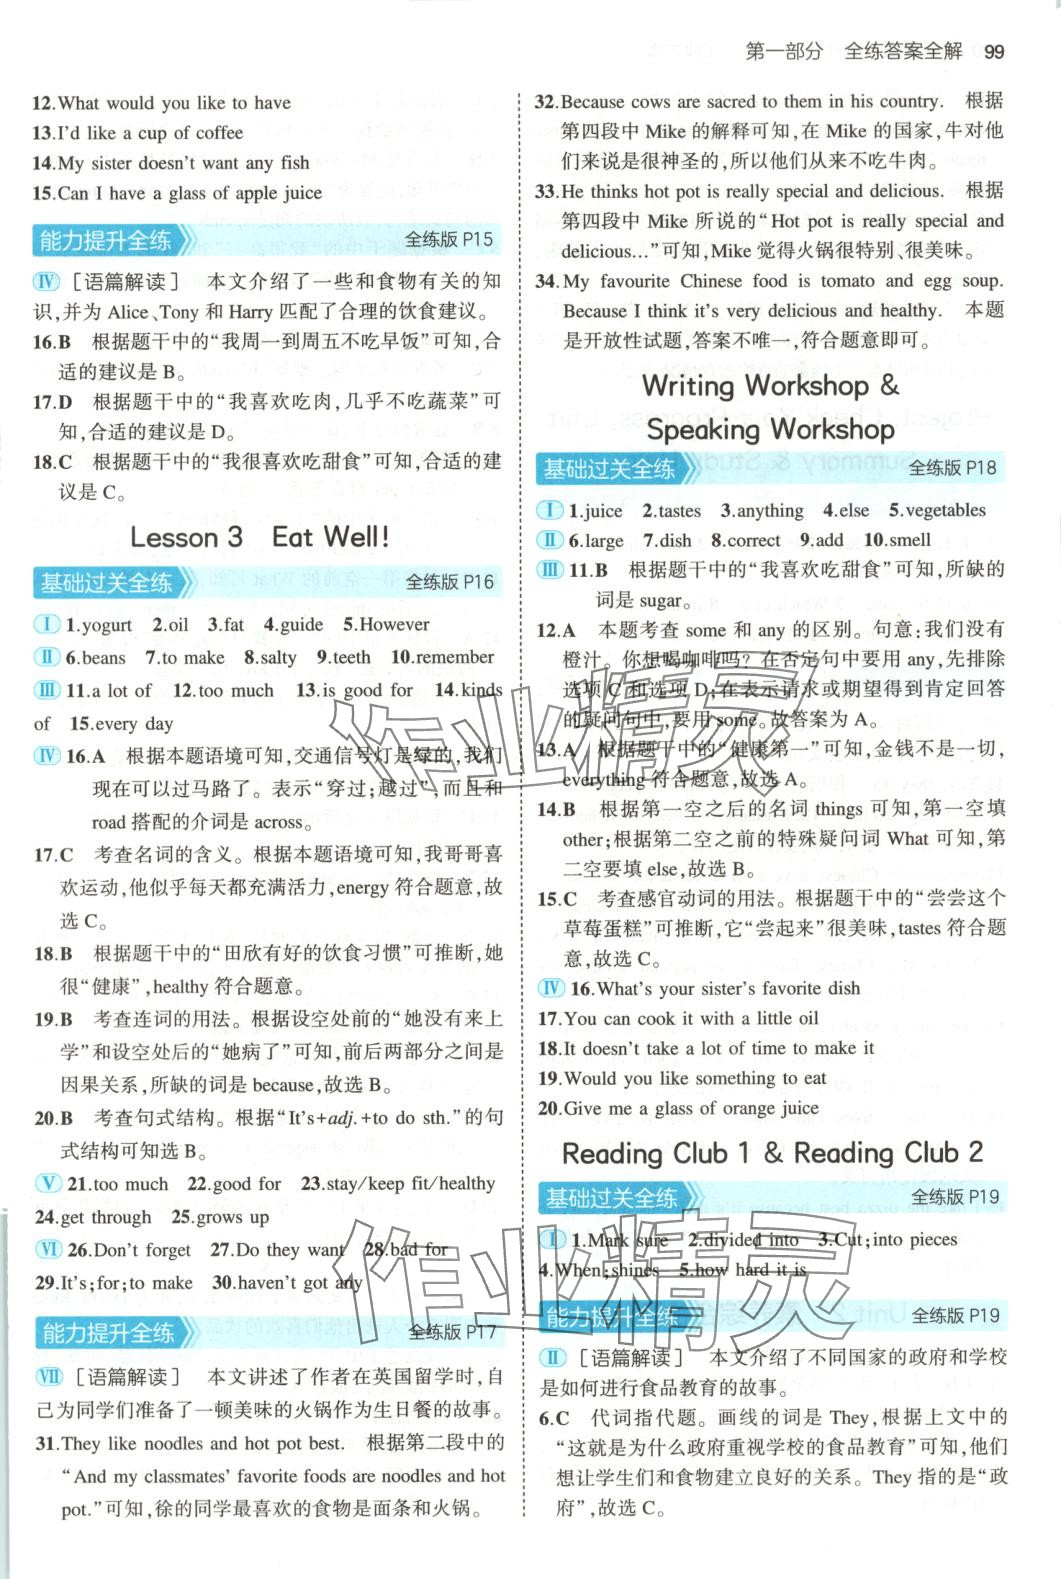 第一部分 全练答案全解 99
12.What would you like to have
13.I'd like a cup of coffee
14.My sister doesn't want any fish
15.Can I have a glass of apple juice
能力提升全练 全练版 P15
Ⅳ [语篇解读] 本文介绍了一些和食物有关的知
识,并为 Alice、Tony 和 Harry 匹配了合理的饮食建议。
16.B 根据题干中的“我周一到周五不吃早饭”可知,合
适的建议是 B。
17.D 根据题干中的“我喜欢吃肉,几乎不吃蔬菜”可
知,合适的建议是 D。
18.C 根据题干中的“我很喜欢吃甜食”可知,合适的建
议是 C。
Lesson 3 Eat Well!
基础过关全练 全练版 P16
Ⅰ 1.yogurt 2.oil 3.fat 4.guide 5.However
Ⅱ 6.beans 7.to make 8.salty 9.teeth 10.remember
Ⅲ 11.a lot of 12.too much 13.is good for 14.kinds
of 15.every day
Ⅳ 16.A 根据本题语境可知,交通信号灯是绿的,我们
现在可以过马路了。表示“穿过;越过”,而且和
road 搭配的介词是 across。
17.C 考查名词的含义。根据本题语境可知,我哥哥喜
欢运动,他似乎每天都充满活力,energy 符合题意,故
选 C。
18.B 根据题干中的“田欣有好的饮食习惯”可推断,她
很“健康”,healthy 符合题意。
19.B 考查连词的用法。根据设空处前的“她没有来上
学”和设空处后的“她病了”可知,前后两部分之间是
因果关系,所缺的词是 because,故选 B。
20.B 考查句式结构。根据“It's+adj.+to do sth.”的句
式结构可知选 B。
Ⅴ 21.too much 22.good for 23.stay/keep fit/healthy
24.get through 25.grows up
Ⅵ 26.Don't forget 27.Do they want 28.bad for
29.It's;for;to make 30.haven't got any
能力提升全练 全练版 P17
Ⅶ [语篇解读] 本文讲述了作者在英国留学时,自
己为同学们准备了一顿美味的火锅作为生日餐的故事。
31.They like noodles and hot pot best. 根据第二段中的
“And my classmates' favorite foods are noodles and hot
pot.”可知,徐的同学最喜欢的食物是面条和火锅。
32.Because cows are sacred to them in his country. 根据
第四段中 Mike 的解释可知,在 Mike 的国家,牛对他
们来说是很神圣的,所以他们从来不吃牛肉。
33.He thinks hot pot is really special and delicious. 根据
第四段中 Mike 所说的“Hot pot is really special and
delicious...”可知,Mike 觉得火锅很特别、很美味。
34.My favourite Chinese food is tomato and egg soup.
Because I think it's very delicious and healthy. 本题
是开放性试题,答案不唯一,符合题意即可。
Writing Workshop &
Speaking Workshop
基础过关全练 全练版 P18
Ⅰ 1.juice 2.tastes 3.anything 4.else 5.vegetables
Ⅱ 6.large 7.dish 8.correct 9.add 10.smell
Ⅲ 11.B 根据题干中的“我喜欢吃甜食”可知,所缺的
词是 sugar。
12.A 本题考查 some 和 any 的区别。句意:我们没有
橙汁。你想喝咖啡吗?在否定句中要用 any,先排除
选项 C 和选项 D;在表示请求或期望得到肯定回答
的疑问句中,要用 some。故答案为 A。
13.A 根据题干中的“健康第一”可知,金钱不是一切,
everything 符合题意,故选 A。
14.B 根据第一空之后的名词 things 可知,第一空填
other;根据第二空之前的特殊疑问词 What 可知,第
二空要填 else,故选 B。
15.C 考查感官动词的用法。根据题干中的“尝尝这个
草莓蛋糕”可推断,它“尝起来”很美味,tastes 符合题
意,故选 C。
Ⅳ 16.What's your sister's favorite dish
17.You can cook it with a little oil
18.It doesn't take a lot of time to make it
19.Would you like something to eat
20.Give me a glass of orange juice
Reading Club 1 & Reading Club 2
基础过关全练 全练版 P19
Ⅰ 1.Mark sure 2.divided into 3.Cut;into pieces
4.When;shines 5.how hard it is
能力提升全练 全练版 P19
Ⅱ [语篇解读] 本文介绍了不同国家的政府和学校
是如何进行食品教育的故事。
6.C 代词指代题。画线的词是 They,根据上文中的
“这就是为什么政府重视学校的食品教育”可知,他们
想让学生们和食物建立良好的关系。They 指的是“政
府”,故选 C。
作业精灵
作业精灵